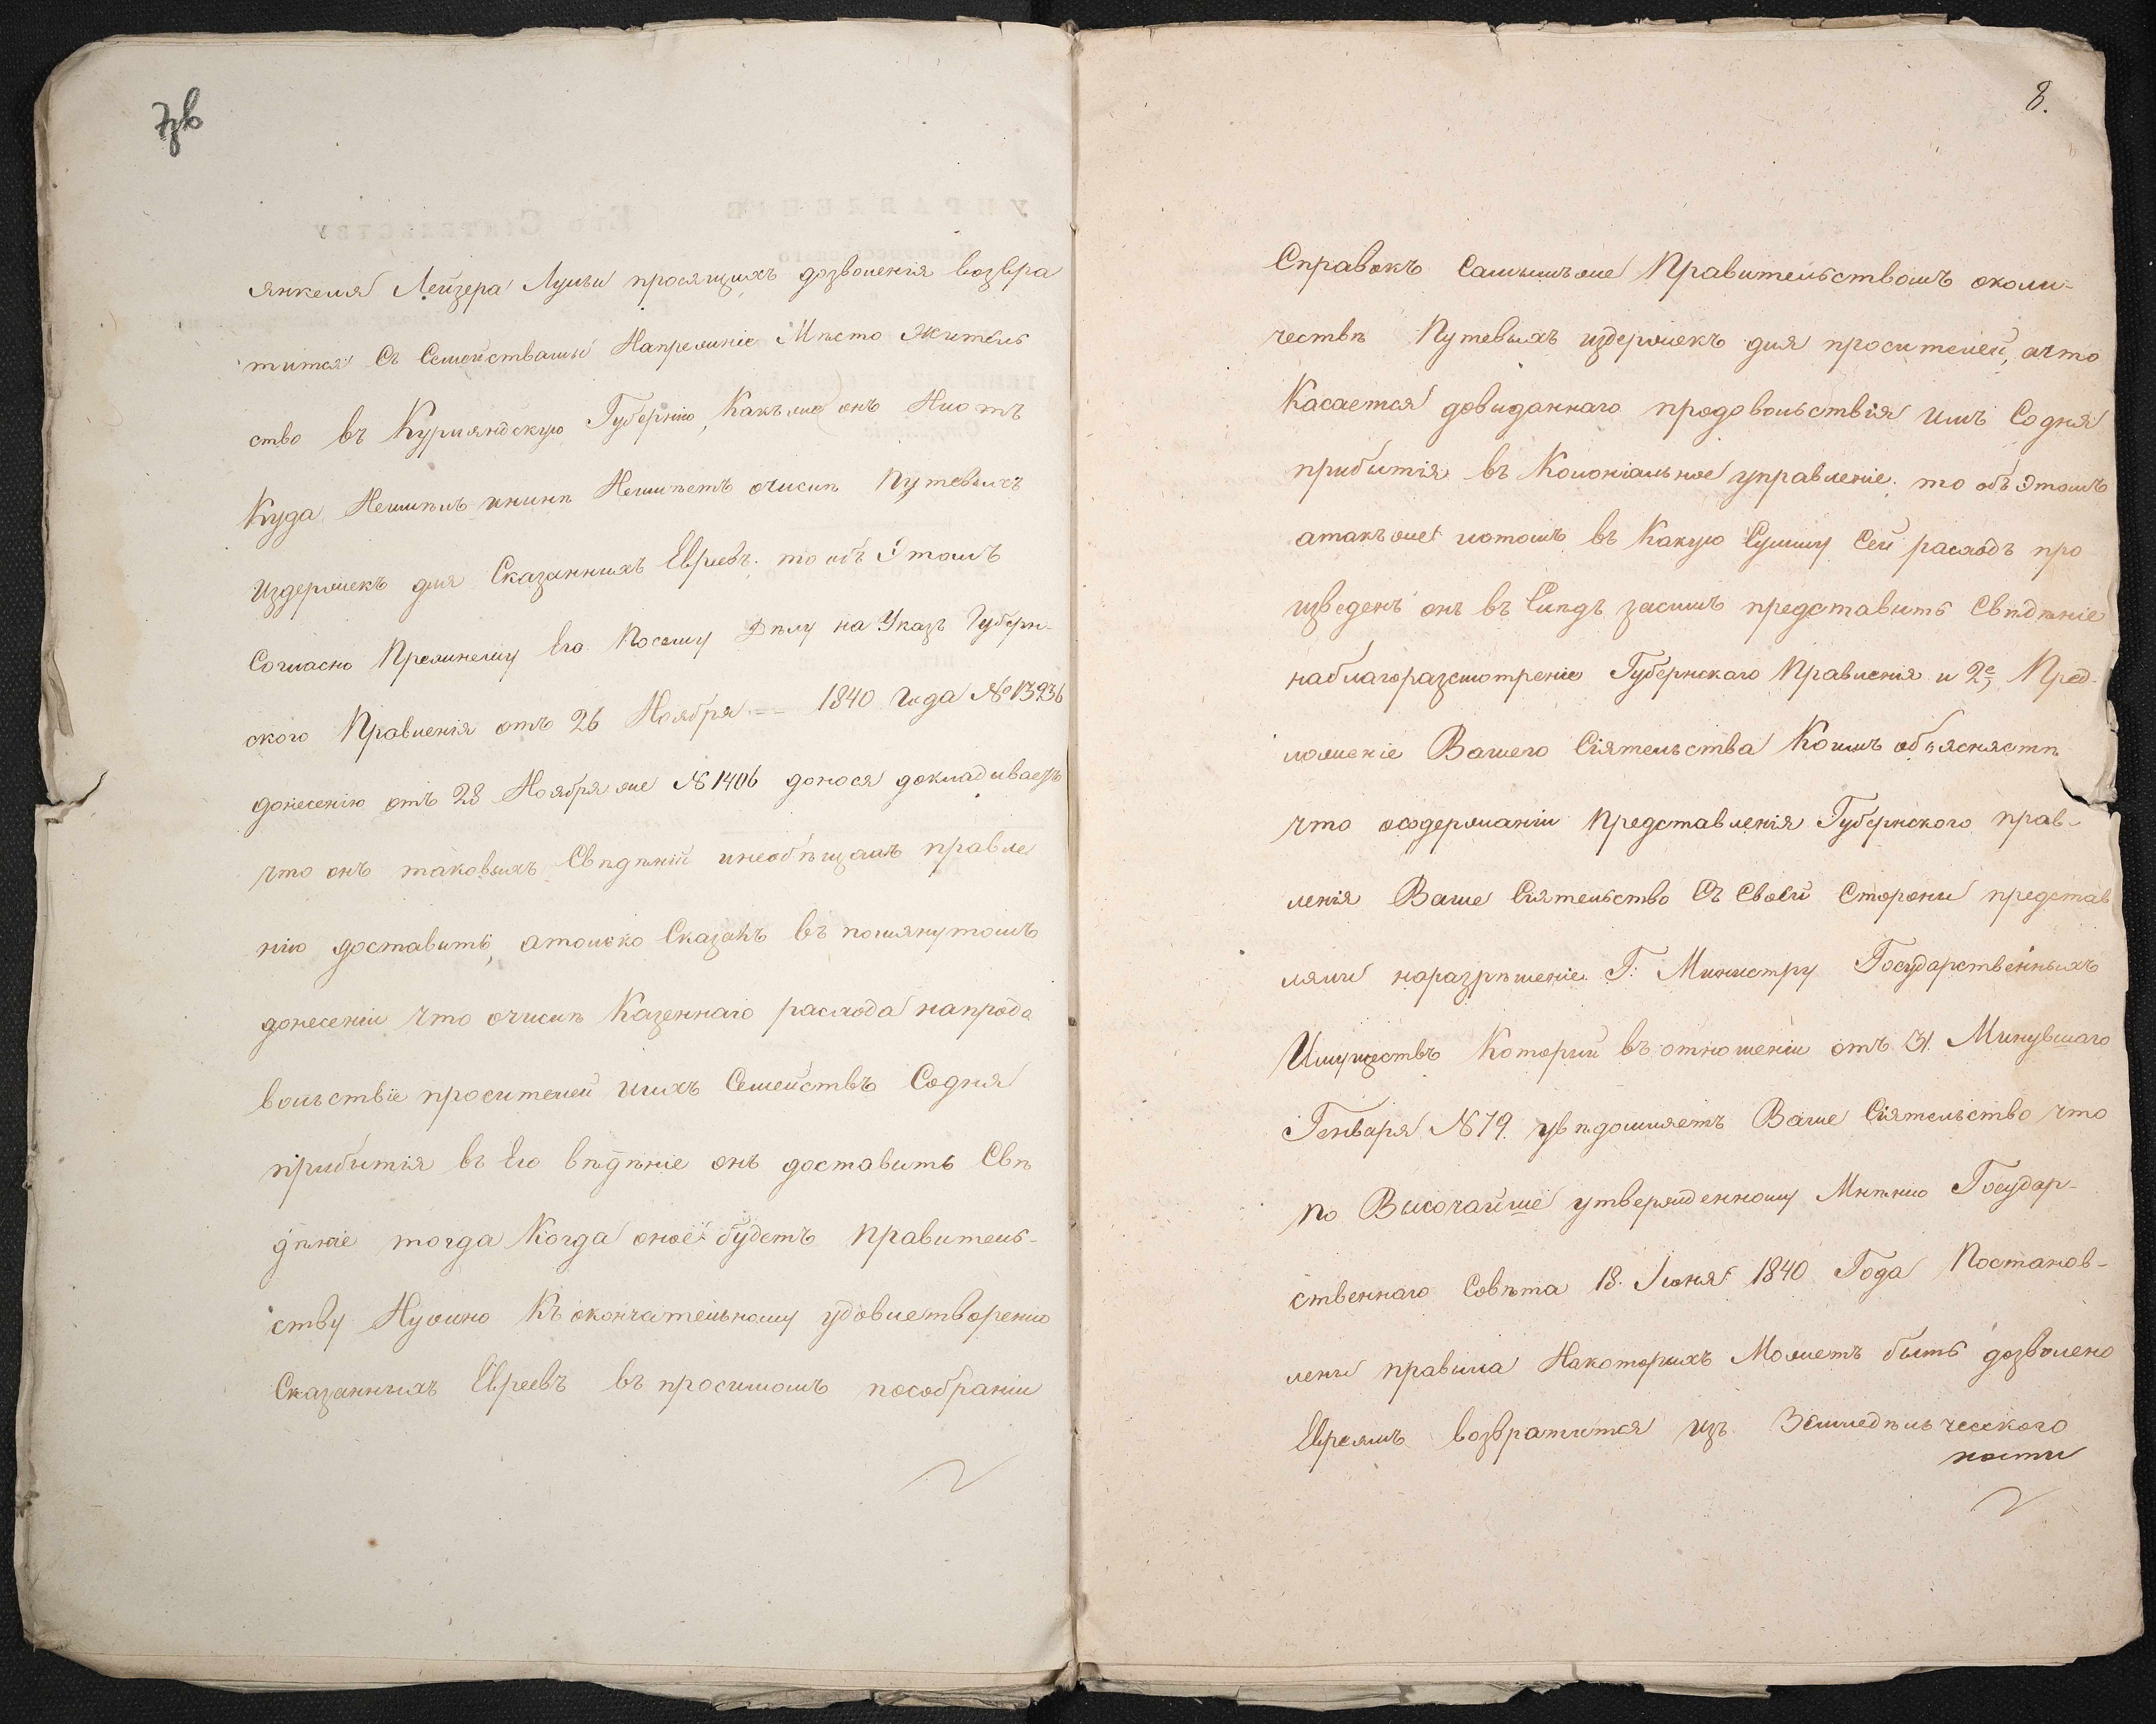 7зв
янкеля Лейзера Лумы просящихъ дозволенія возвра
титса Съ Семействами Напрежніе Мѣсто Житель
ство въ Курляндскую Губернію, Какъ же онъ Ниотъ
Куда Неимѣлъ инынѣ Неимѣетъ очислѣ Путевыхъ
Издержекъ для Сказанныхъ Евреевъ. то объ Этомъ
Согласно Прежнему Его Посему Дѣлу на Указъ Губерн-
ского Правленія отъ 26 Ноября 1840 Года № 13236
донесенію отъ 28 Ноября же № 1406 донося докладываетъ
что онъ таковыхъ Свѣдѣній инеобѣщалъ правле
нію доставить, атолько Сказалъ въ помянутомъ
донесеніи что очислѣ Казеннаго расхода напродо
вольствіе просителей ихъ Семействъ Содня
прибытія въ Его вѣдѣніе онъ доставитъ Свѣ
дѣніе тогда Когда оное будетъ Правитель-
ству Нужно Къ окончательному удовлетворенію
Сказанныхъ Евреевъ въ просимомъ пособраніи
8.
Справокъ Самымъ же Правительствомъ околи-
чествѣ Путевыхъ издержекъ для просителей, ачто
Касается довыданнаго продовольствія имъ Содня
прибытія въ Колоніальное управленіе. то объ Этомъ
атакъ же иотомъ въ Какую Сумму Сей расходъ про
изведенъ онъ въ Слѣдъ засимъ представитъ Свѣдѣніе
наблагоразсмотреніе Губернскаго Правленія и 2е, Пред-
ложеніе Вашего Сіятельства Коимъ объясняетѣ
что осодержаніи Представленія Губернского прав-
ленія Ваше Сіятельство Съ Своей Стороны представ
ляли наразрѣшеніе Г: Министру Государственныхъ
Имуществъ Который въ отношеніи отъ 31 Минувшаго
Генваря № 79. увѣдомляетъ Ваше Сіятельство что
по Высочайше утвержденному Мнѣнію Государ-
ственнаго Совѣта 18. Іюня 1840 Года Постанов-
лены правила Накоторыхъ Можетъ быть дозволено
Евреямъ возвратится изъ Земледѣльческого